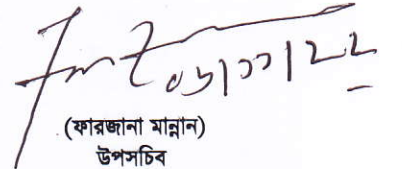 ০৬/১১/২২
(ফারজানা মান্নান)
উপসচিব